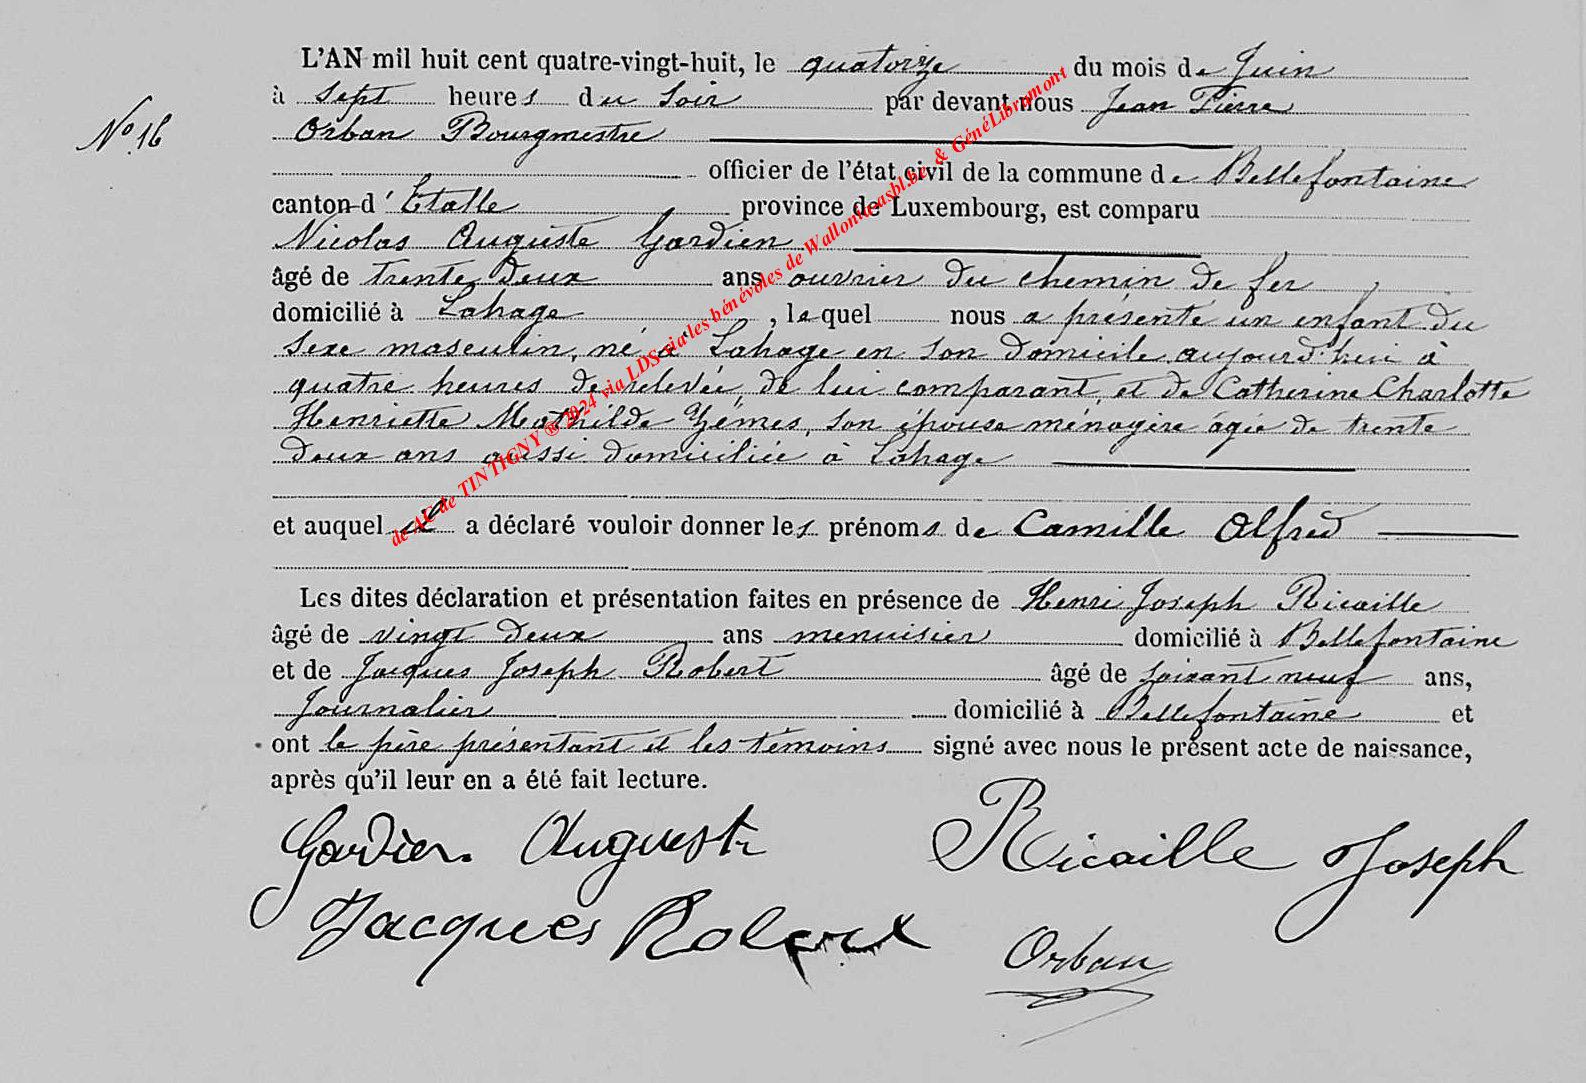 L'AN mil huit cent quatre-vingt-huit, le quatorze du mois de Juin
à sept heures du soir par devant nous Jean Pierre
No 16
Orban Bourgmestre
officier de l'état civil de la commune de Bellefontaine
canton d' Etalle province de Luxembourg, est comparu
Nicolas Auguste Gardien
âgé de trente deux ans ouvrier du chemin de fer,
domicilié à Lahage, lequel nous a présenté un enfant du
sexe masculin, né à Lahage en son domicile aujourd'hui à
quatre heures de relevée, de lui comparant, et de Catherine Charlotte
Henriette Mathilde Yémes, son épouse ménagère âgée de trente
deux ans aussi domiciliée à Lahage
et auquel il a déclaré vouloir donner les prénoms de Camille Alfred
Les dites déclaration et présentation faites en présence de Henri Joseph Ricaille
âgé de vingt deux ans menuisier domicilié à Bellefontaine
et de Jacques Joseph Robert âgé de soixant neuf ans,
Journalier domicilié à Bellefontaine et
ont le père présentant et les témoins signé avec nous le présent acte de naissance,
après qu'il leur en a été fait lecture.
Gardien Auguste Ricaille Joseph
Jacques Robert Orban
de AC de TINTIGNY ® 2024 via LDS via les bénévoles de Wallonia-asbl.be & GénéLibramont